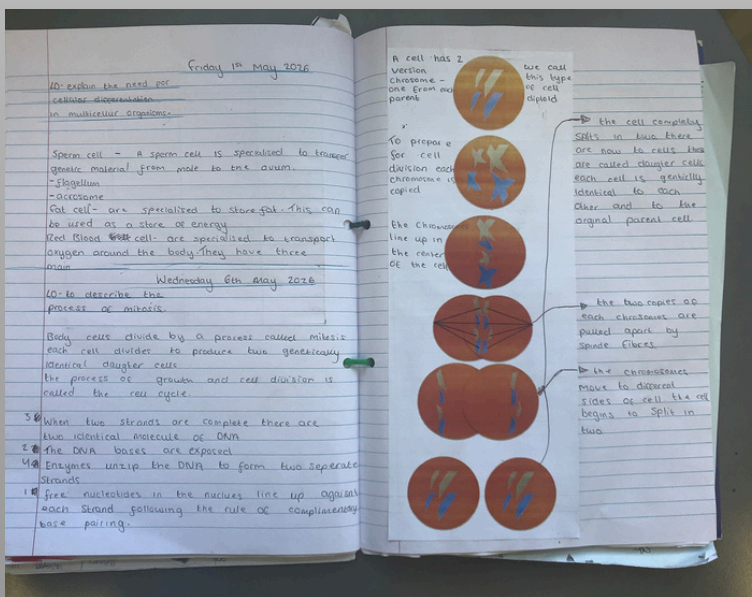 Friday 1st May 2026
LO: explain the need for
cellular differentiation
in multicellur organisms.
Sperm cell - A sperm cell is specialised to transfer
genetic material from male to the ovum.
-flagellum
-acrosome
Fat cell- are specialised to store fat. This can
be used as a store of energy
Red Blood cell- are specialised to transport
oxygen around the body. They have three
main
Wednesday 6th May 2026
LO- to describe the
process of mitosis.
Body cells divide by a process called mitosis
each cell divides to produce two genetically
identical daugher cells
the process of growth and cell division is
called the cell cycle.
3 When two strands are complete there are
two identical molecule of DNA
2 The DNA bases are exposed
4 Enzymes unzip the DNA to form two seperate
strands
1 free nucleotides in the nucleus line up against
each strand following the rule of complimentary
base pairing.
A cell has 2
version
chrosome -
one from each
parent
we call
this type
of cell
diploid
To prepare
for cell
division each
chromosome is
copied
the chromosomes
line up in
the center
of the cell
the cell completly
splits in two there
are now to cells these
are called daugher cells
each cell is gentically
identical to each
other and to the
orginal parent cell
the two copies of
each chrosomes are
pulled apart by
spinde fibres.
the chromosomes
move to different
sides of cell the cell
begins to split in
two